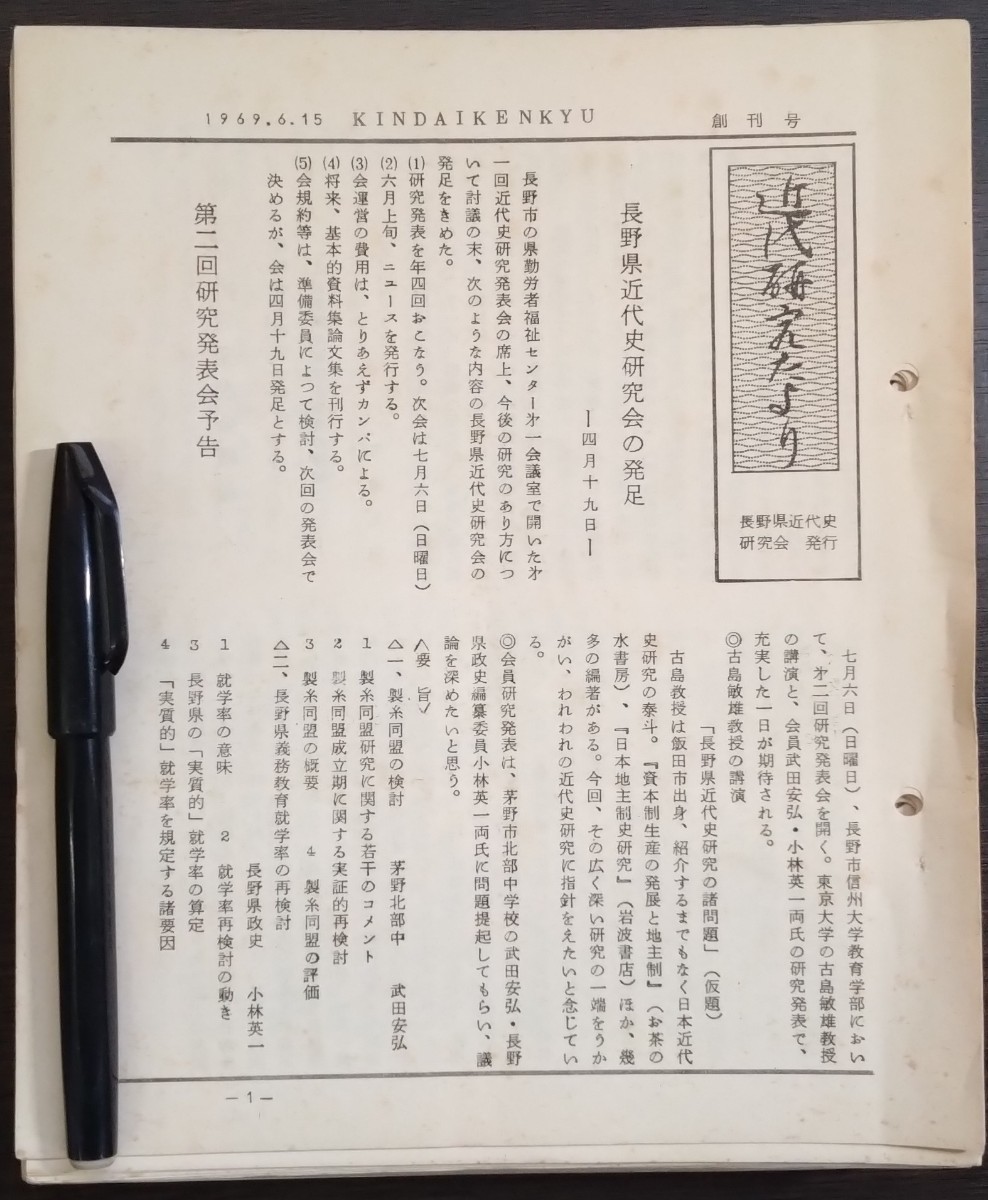 1969.6.15 KINDAIKENKYU 創刊号
近代研究たより
長野県近代史
研究会 発行
長野県近代史研究会の発足
―四月十九日―
長野市の県勤労者福祉センター才一会議室で開いた才
一回近代史研究発表会の席上、今後の研究のあり方につ
いて討議の末、次のような内容の長野県近代史研究会の
発足をきめた。
(1)研究発表を年四回おこなう。次会は七月六日(日曜日)
(2)六月上旬、ニュースを発行する。
(3)会運営の費用は、とりあえずカンパによる。
(4)将来、基本的資料集論文集を刊行する。
(5)会規約等は、準備委員によつて検討、次回の発表会で
決めるが、会は四月十九日発足とする。
第二回研究発表会予告
七月六日(日曜日)、長野市信州大学教育学部におい
て、才二回研究発表会を開く。東京大学の古島敏雄教授
の講演と、会員武田安弘・小林英一両氏の研究発表で、
充実した一日が期待される。
◎古島敏雄教授の講演
「長野県近代史研究の諸問題」(仮題)
古島教授は飯田市出身、紹介するまでもなく日本近代
史研究の泰斗。『資本制生産の発展と地主制』(お茶の
水書房)、『日本地主制史研究』(岩波書店)ほか、幾
多の編著がある。今回、その広く深い研究の一端をうか
がい、われわれの近代史研究に指針をえたいと念じてい
る。
◎会員研究発表は、茅野市北部中学校の武田安弘・長野
県政史編纂委員小林英一両氏に問題提起してもらい、議
論を深めたいと思う。
〈要 旨〉
△一、製糸同盟の検討 茅野北部中 武田安弘
1 製糸同盟研究に関する若干のコメント
2 製糸同盟成立期に関する実証的再検討
3 製糸同盟の概要 4 製糸同盟の評価
△二、長野県義務教育就学率の再検討
長野県政史 小林英一
1 就学率の意味 2 就学率再検討の動き
3 長野県の「実質的」就学率の算定
4 「実質的」就学率を規定する諸要因
―1―